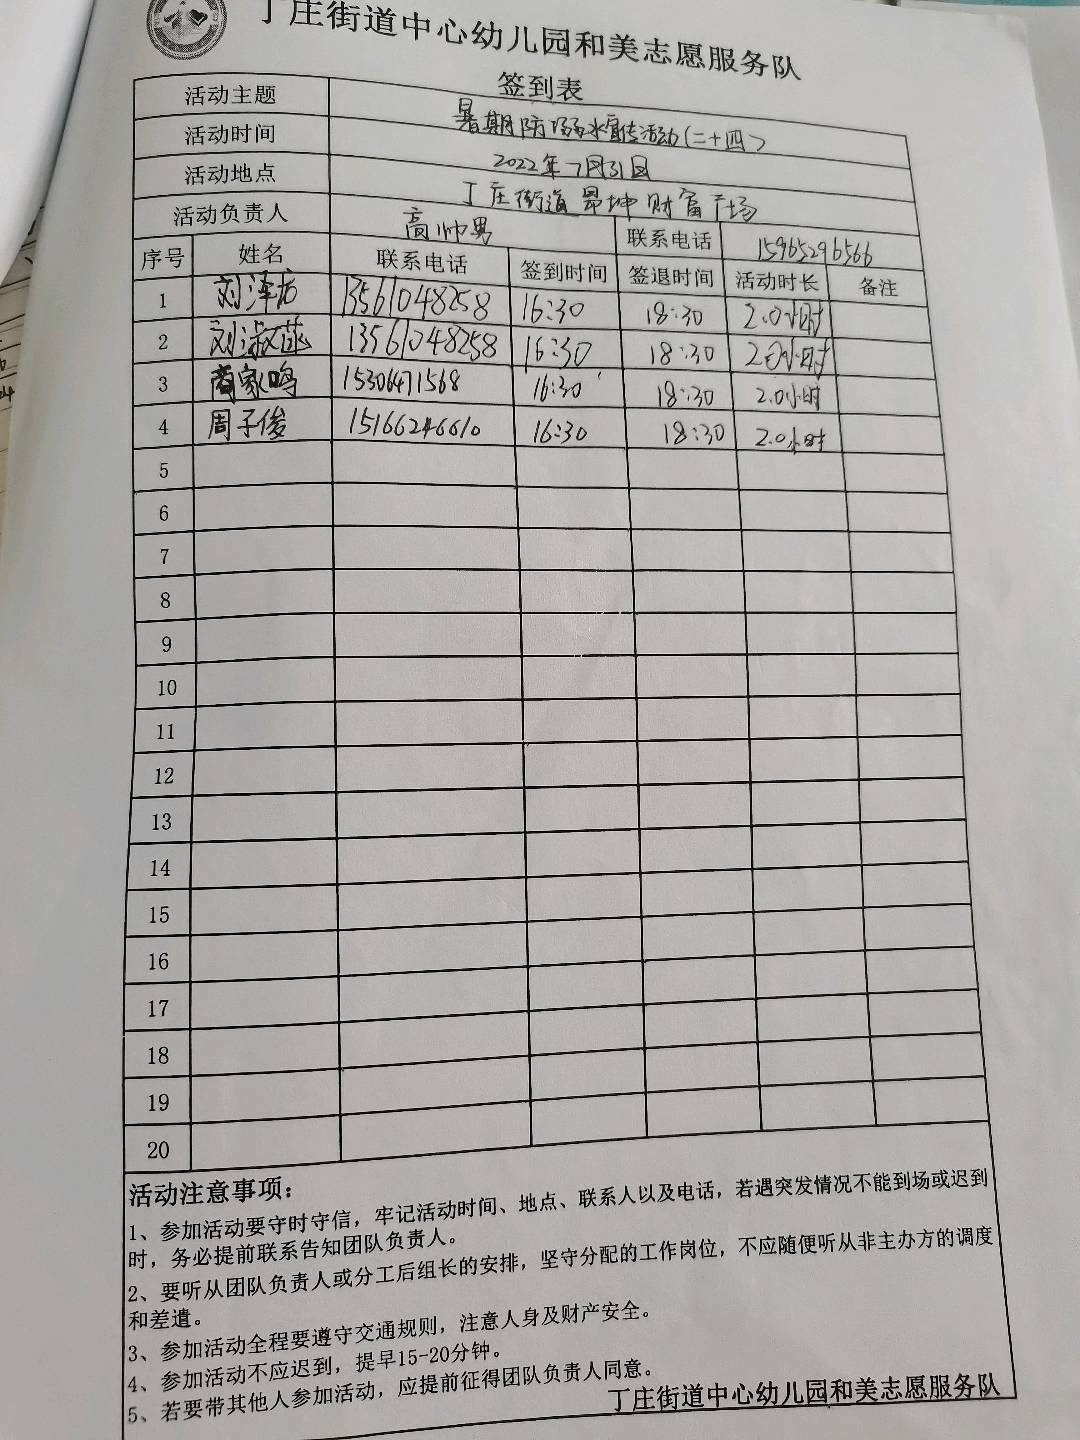 丁庄街道中心幼儿园和美志愿服务队
签到表
活动主题 暑期防溺水宣传活动(二十四)
活动时间 2022年7月31日
活动地点 丁庄街道昂坤财富广场
活动负责人 高帅男 联系电话 15965296566
序号 姓名 联系电话 签到时间 签退时间 活动时长 备注
1 刘泽 13561048258 16:30 18:30 2.0小时
2 刘淑菡 13561048258 16:30 18:30 2.0小时
3 商家鸣 15306471568 16:30 18:30 2.0小时
4 周子俊 15166246610 16:30 18:30 2.0小时
5
6
7
8
9
10
11
12
13
14
15
16
17
18
19
20
活动注意事项:
1、参加活动要守时守信，牢记活动时间、地点、联系人以及电话，若遇突发情况不能到场或迟到
时，务必提前联系告知团队负责人。
2、要听从团队负责人或分工后组长的安排，坚守分配的工作岗位，不应随便听从非主办方的调度
和差遣。
3、参加活动全程要遵守交通规则，注意人身及财产安全。
4、参加活动不应迟到，提早15-20分钟。
5、若要带其他人参加活动，应提前征得团队负责人同意。
丁庄街道中心幼儿园和美志愿服务队